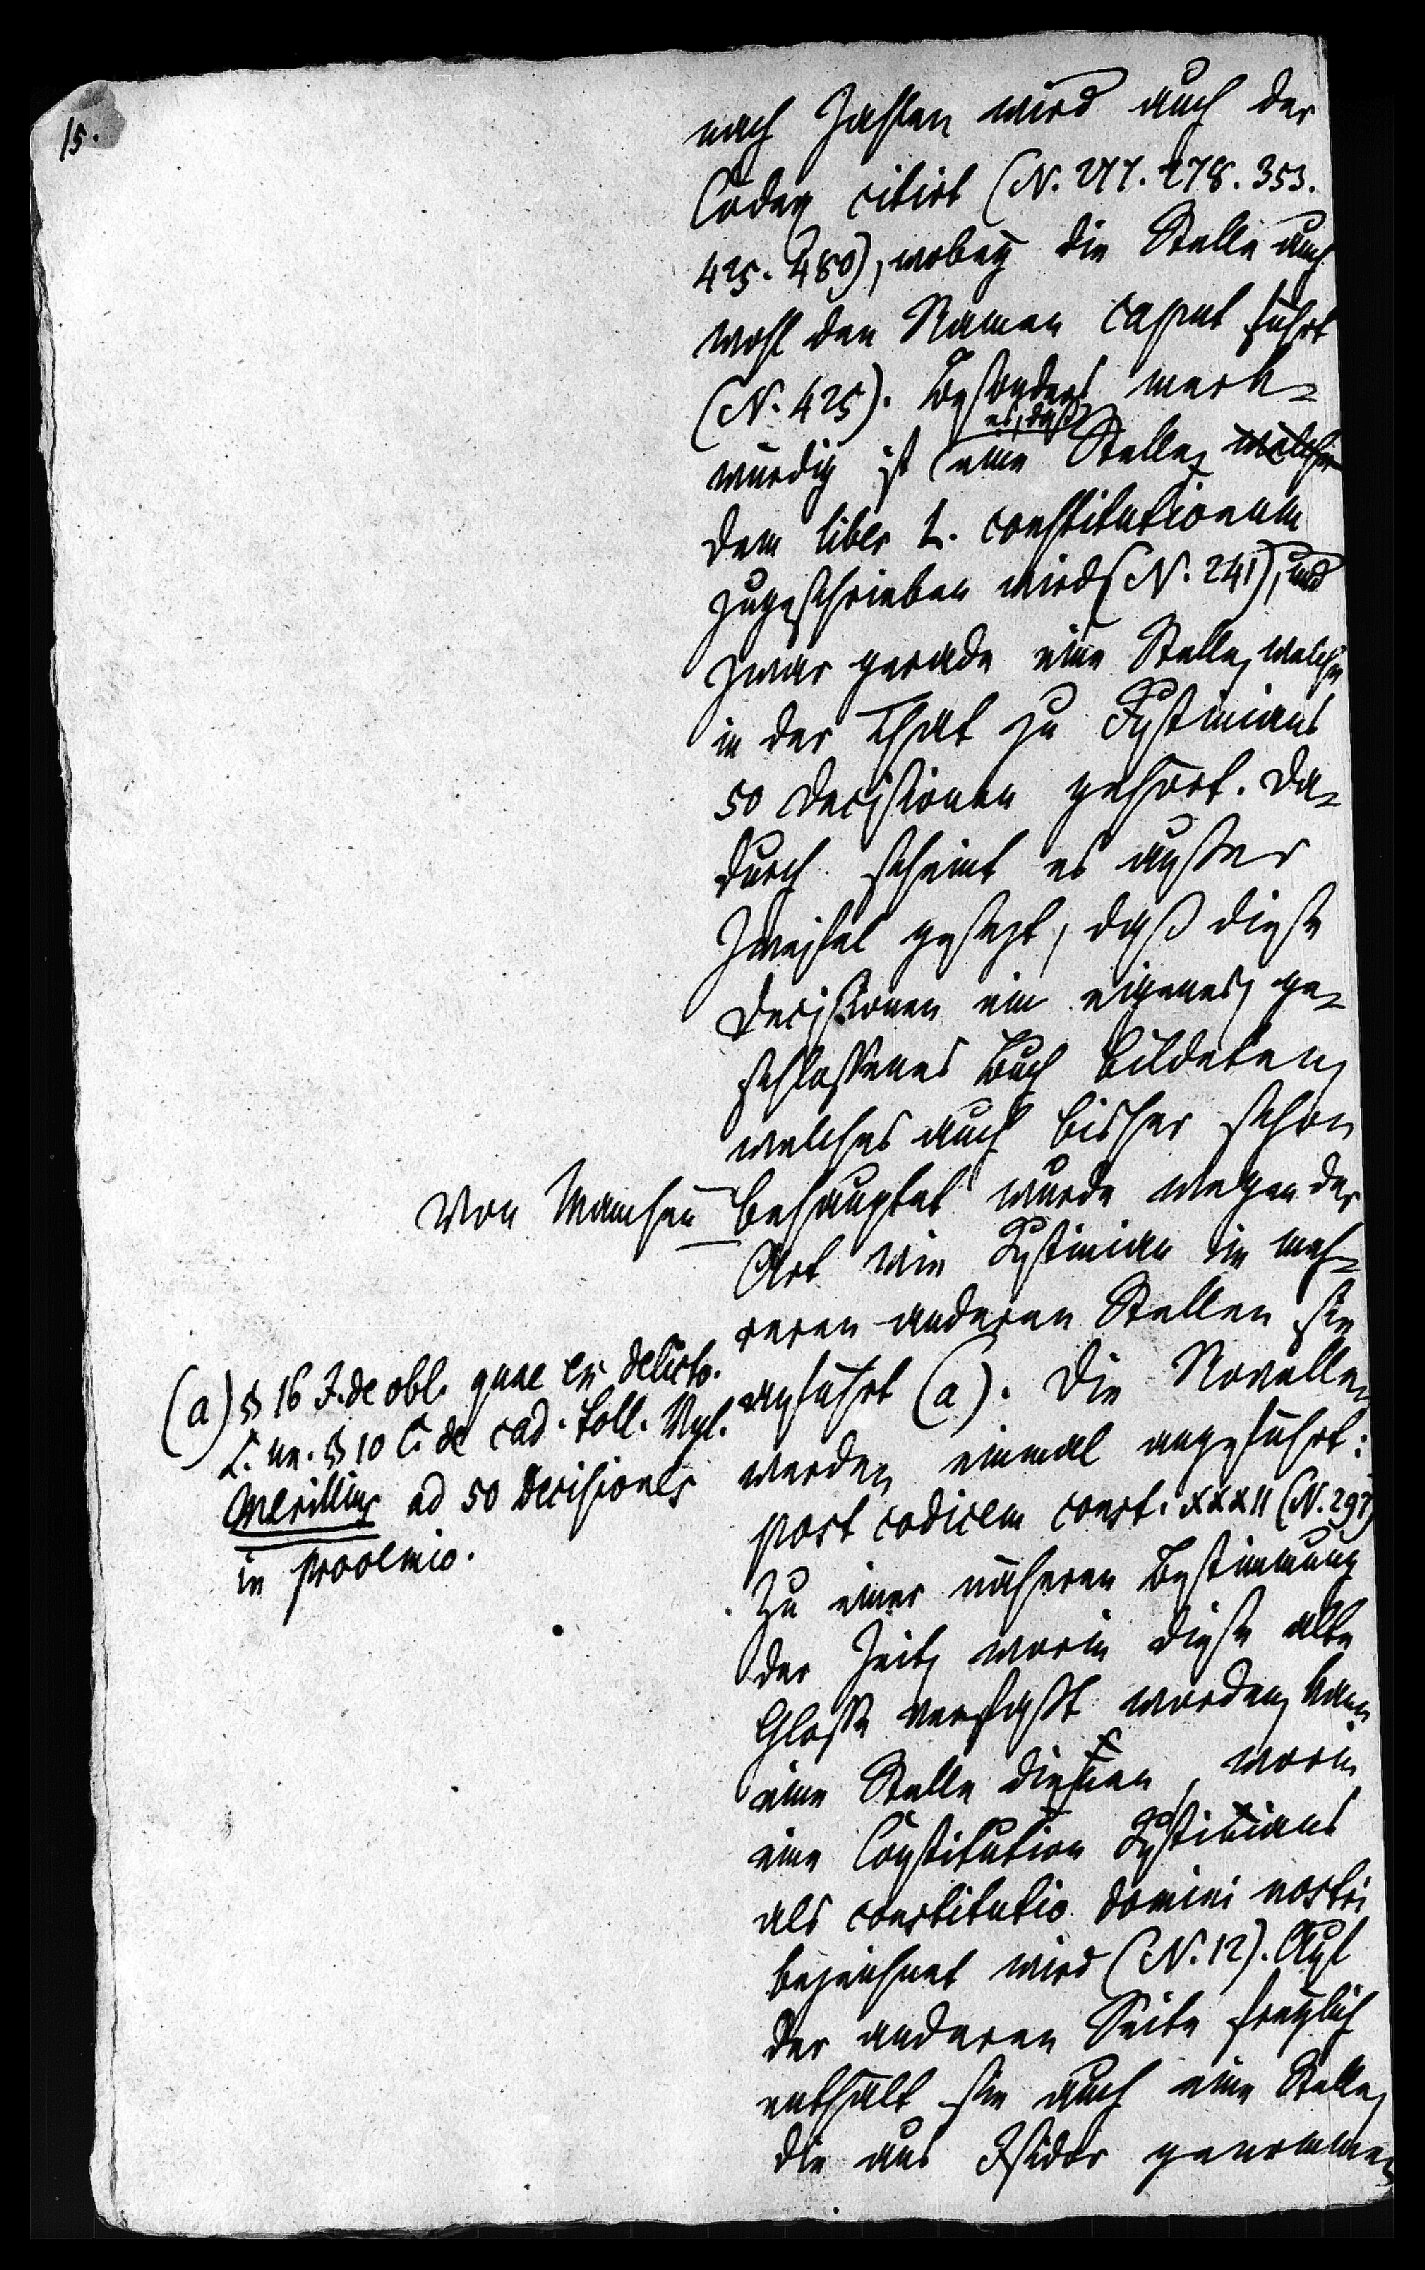 15.
nach Zahlen wird auch der
Codex citirt (N. 277. 278. 353.
425. 480), wobey die Stelle auch
wohl den Namen caput führt
(N. 425). Besonders merk-
es, daß
würdig ist eine Stelle, welche
dem liber L. constitutionum
zugeschrieben wird (N. 241), und
zwar gerade eine Stelle, welche
in der That zu Justinians
50 Decisionen gehört. Da-
durch scheint es ausser
Zweifel gesezt, daß diese
Decisionen ein eigenes, ge-
schlossenes Buch bildeten,
welches auch bisher schon
Von Manchen behauptet wurde wegen der
Art wie Justinian in meh-
reren anderen Stellen sie
anführt (a). Die Novellen
werden einmal angeführt:
post codicem const. XXXII (N. 297)
Zu einer näheren Bestimmung
der Zeit, worin diese alte
Glosse verfaßt worden, kann
eine Stelle dienen, worin
eine Constitution Justinians
als constitutio domini nostri
bezeichnet wird (N. 12). Auf
der anderen Seite freylich
enthält sie auch eine Stelle,
die aus Isidor genommen
(a) § 16 J. de obl. quae ex delicto.
L. un. § 10 C. de cad. toll. Vgl.
Merillius ad 50 Decisiones
in prooemio.